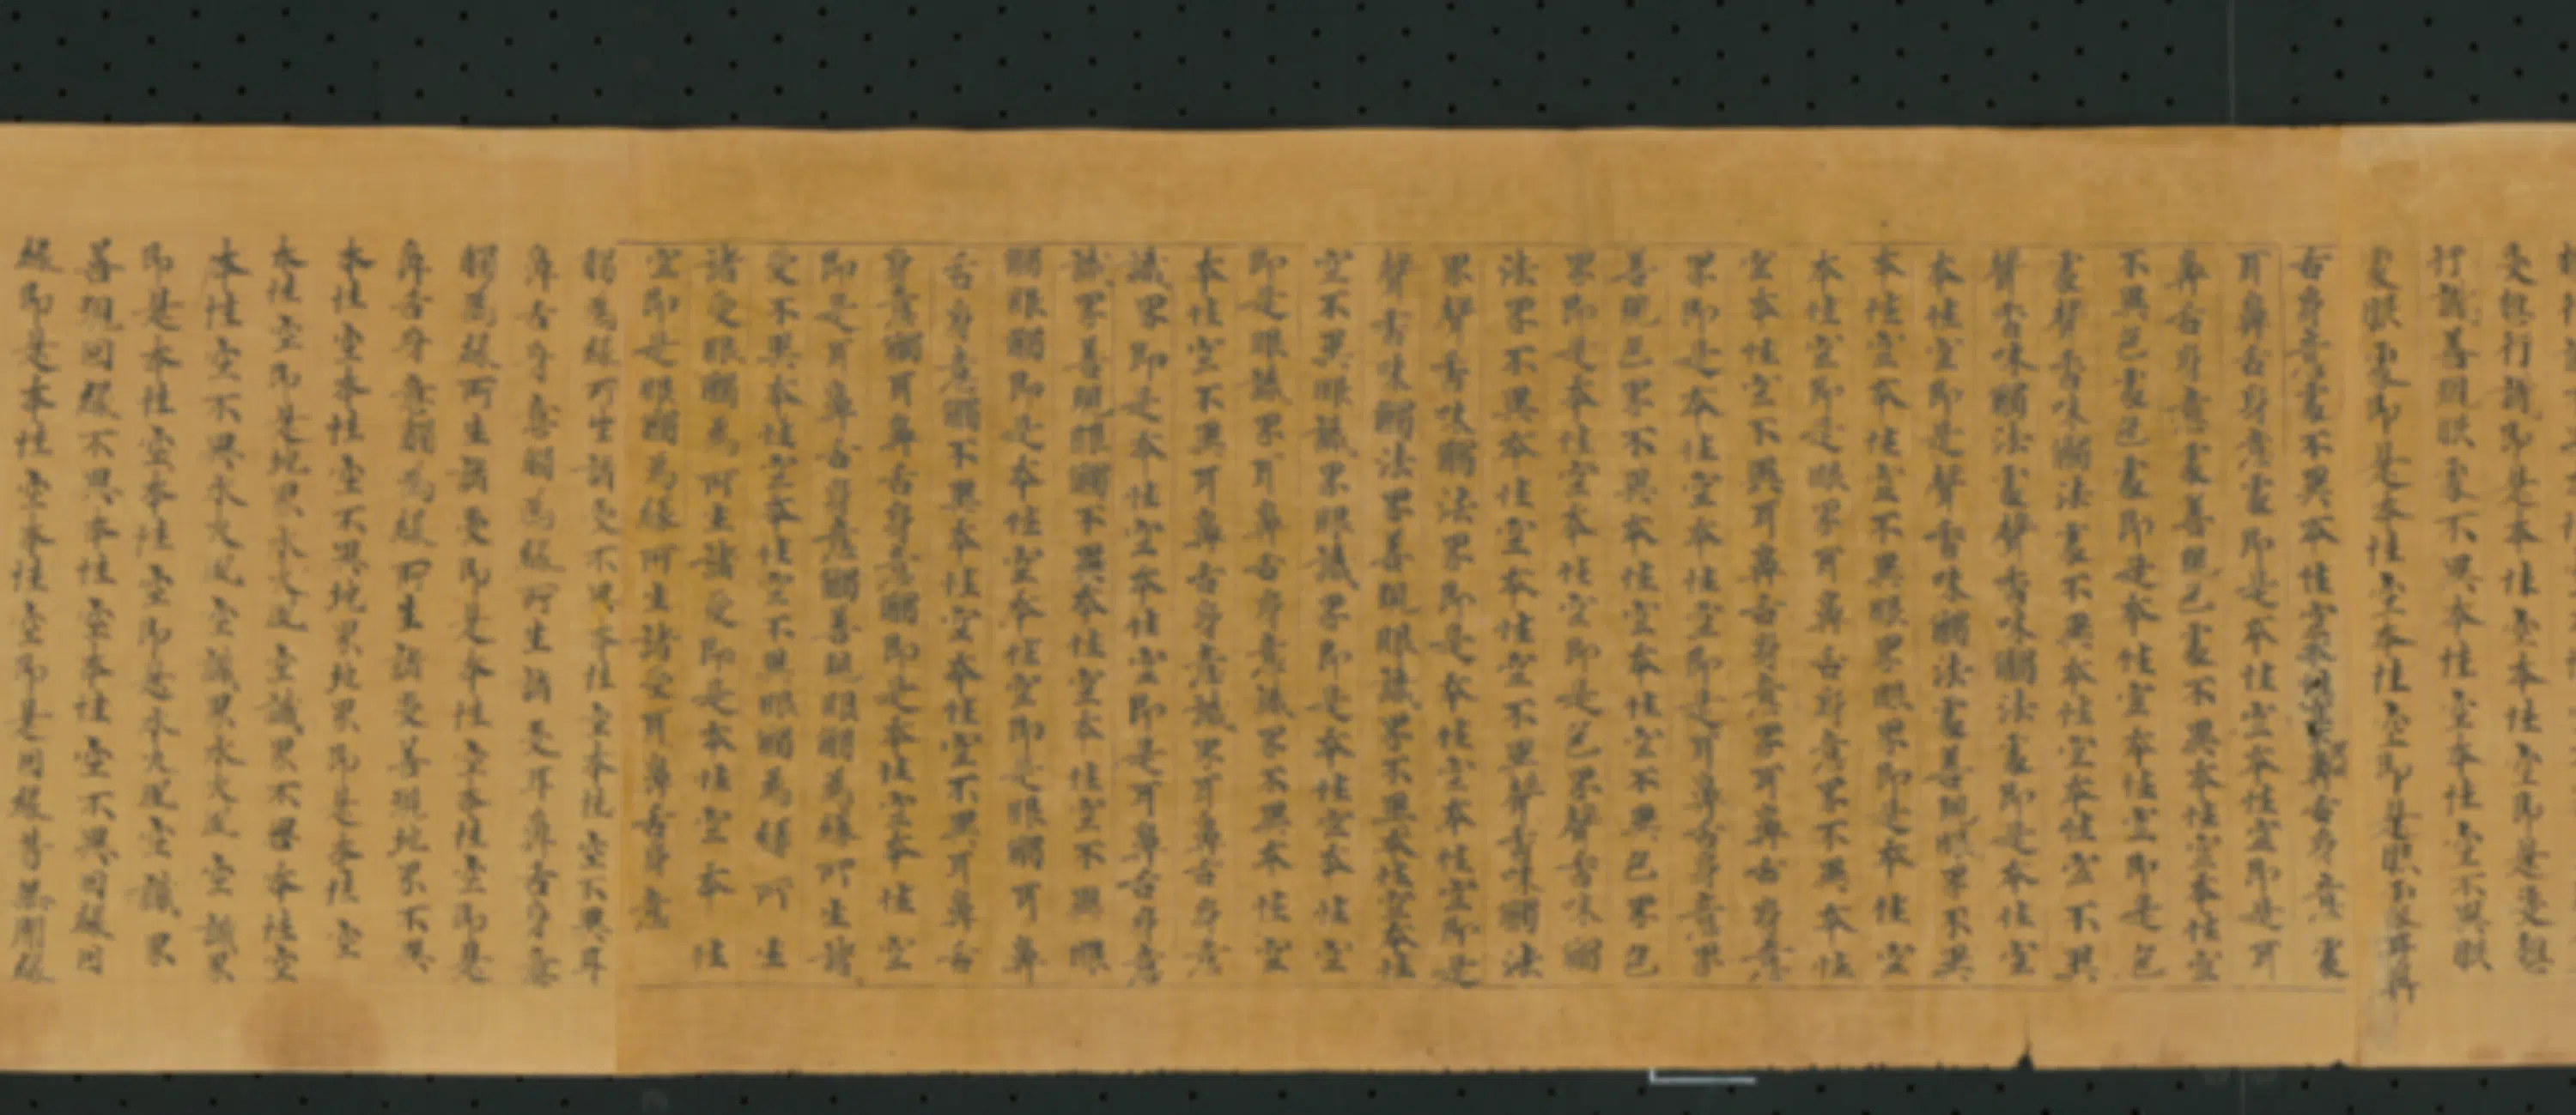 受想行識即是本性空本性空即是受想
行識善現眼處不異本性空本性空不異眼
處眼處即是本性空本性空即是眼處耳鼻
舌身意處不異本性空本性空不異耳鼻舌身意處
耳鼻舌身意處即是本性空本性空即是耳
鼻舌身意處善現色處不異本性空本性空
不異色處色處即是本性空本性空即是色
處聲香味觸法處不異本性空本性空不異
聲香味觸法處聲香味觸法處即是本性空
本性空即是聲香味觸法處善現眼界不異
本性空本性空不異眼界眼界即是本性空
本性空即是眼界耳鼻舌身意界不異本性
空本性空不異耳鼻舌身意界耳鼻舌身意
界即是本性空本性空即是耳鼻舌身意界
善現色界不異本性空本性空不異色界色
界即是本性空本性空即是色界聲香味觸
法界不異本性空本性空不異聲香味觸法
界聲香味觸法界即是本性空本性空即是
聲香味觸法界善現眼識界不異本性空本性
空不異眼識界眼識界即是本性空本性空
即是眼識界耳鼻舌身意識界不異本性空
本性空不異耳鼻舌身意識界耳鼻舌身意
識界即是本性空本性空即是耳鼻舌身意
識界善現眼觸不異本性空本性空不異眼
觸眼觸即是本性空本性空即是眼觸耳鼻
舌身意觸不異本性空本性空不異耳鼻舌
身意觸耳鼻舌身意觸即是本性空本性空
即是耳鼻舌身意觸善現眼觸為緣所生諸
受不異本性空本性空不異眼觸為緣所生
諸受眼觸為所生諸受即是本性空本性
空即是眼觸為緣所生諸受耳鼻舌身意
觸為緣所生諸受不異本性空本性空不異耳
鼻舌身意觸為緣所生諸受耳鼻舌身意
觸為緣所生諸受即是本性空本性空即是
鼻舌身意觸為緣所生諸受善現地界不異
本性空本性空不異地界地界即是本性空
本性空即是地界水火風空識界不異本性空
本性空不異水火風空識界水火風空識界
即是本性空本性空即是水火風空識界
善現因緣不異本性空本性空不異因緣因
緣即是本性空本性空即是因緣等無間緣